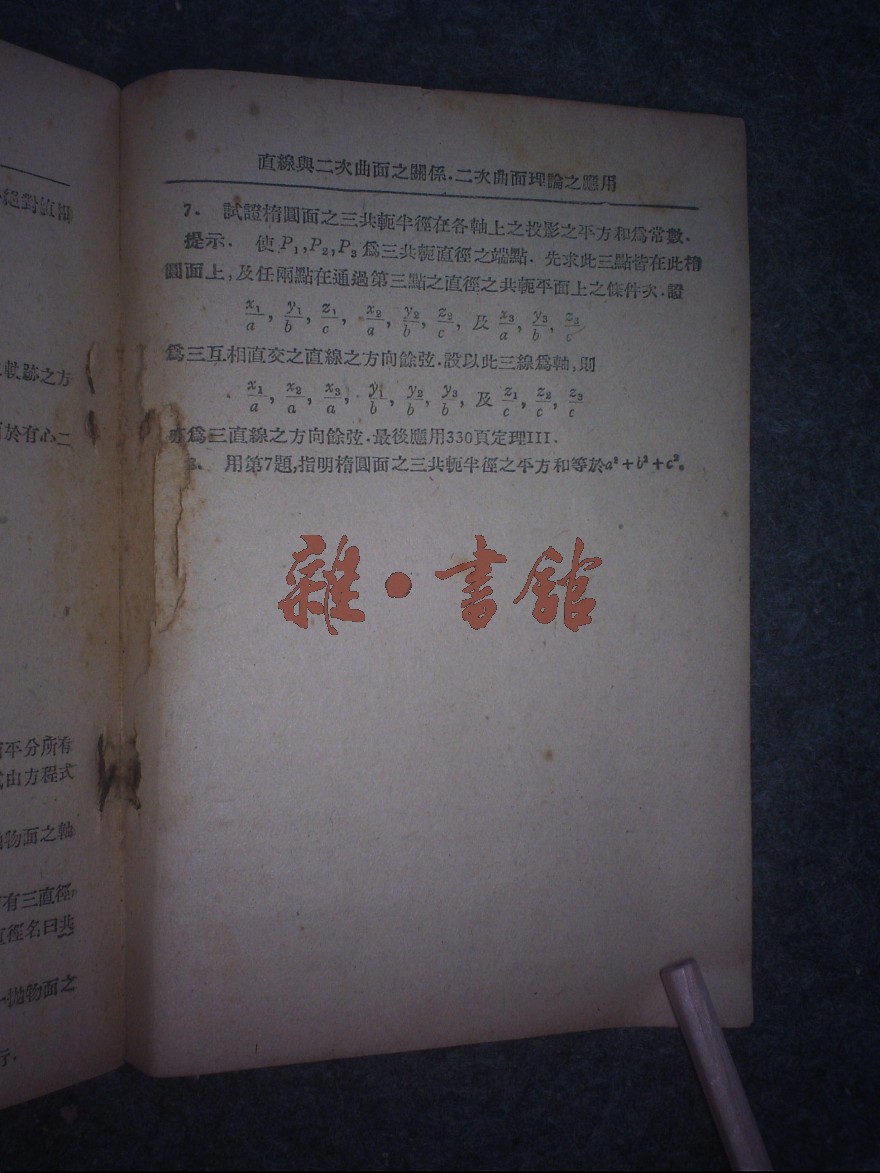 絕對值相
軌跡之方
於有心二
平分所有
由方程式
物面之軸
有三直徑
直徑名曰共
拋物面之
行.
直線與二次曲面之關係.二次曲面理論之應用
7. 試證橢圓面之三共軛半徑在各軸上之投影之平方和爲常數.
提示. 使P₁,P₂,P₃爲三共軛直徑之端點. 先求此三點皆在此橢
圓面上,及任兩點在通過第三點之直徑之共軛平面上之條件次.證
x₁/a, y₁/b, z₁/c, x₂/a, y₂/b, z₂/c, 及 x₃/a, y₃/b, z₃/c
爲三互相直交之直線之方向餘弦.設以此三線爲軸,則
x₁/a, x₂/a, x₃/a, y₁/b, y₂/b, y₃/b, 及 z₁/c, z₂/c, z₃/c
亦爲三直線之方向餘弦.最後應用330頁定理III.
8. 用第7題,指明橢圓面之三共軛半徑之平方和等於a²+b²+c².
雜·書館